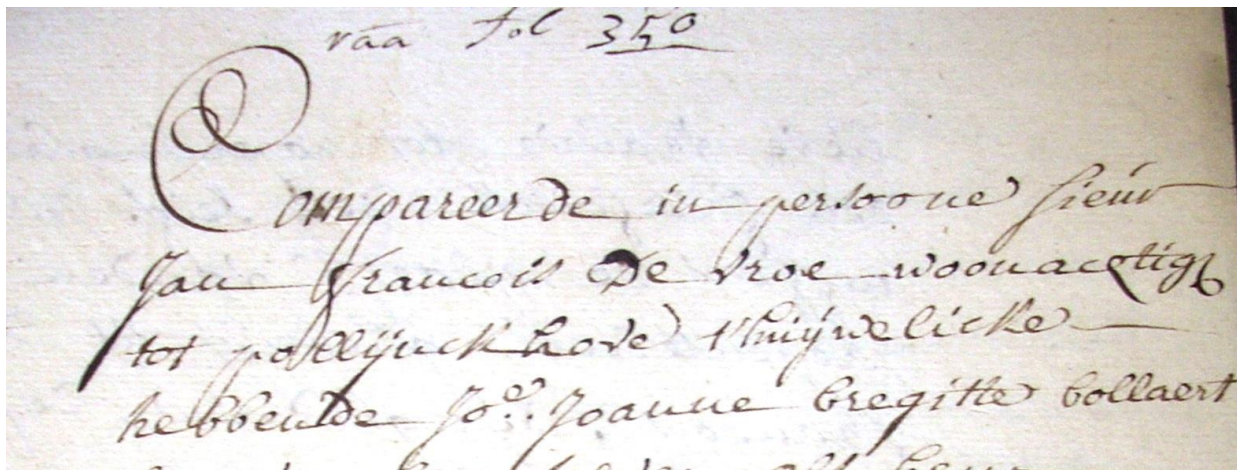 raa fol 350
Compareerde in persoone sieur
Jan francois De vroe woonachtigh
tot pollijnckhove t'huijwelicke
hebbende Joe. Joanne bregitte bollaert